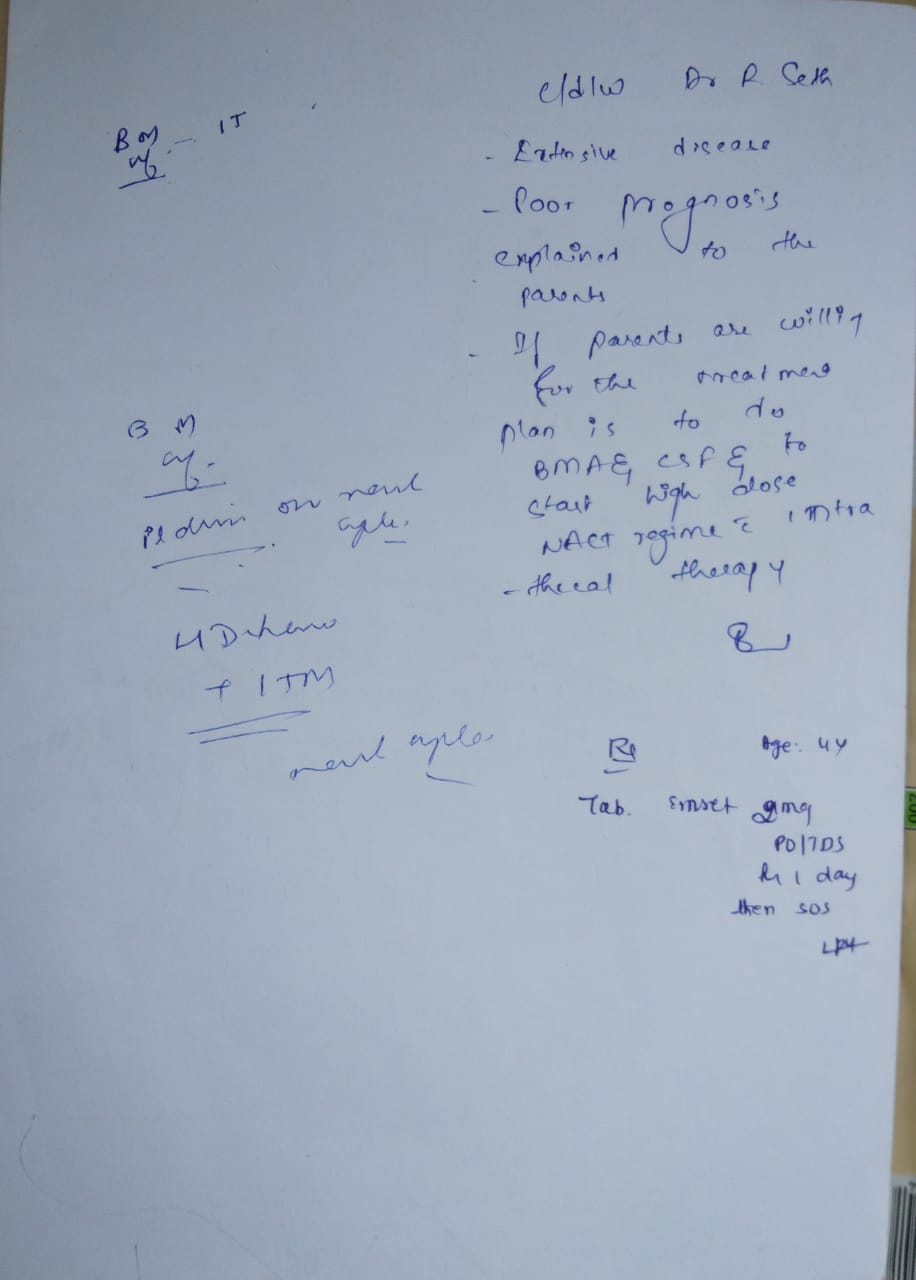 c/d/w Dr R. Seth
- Extensive disease
- Poor prognosis
explained to the
parents
- If parents are willing
for the treatment
plan is to do
BMA &, CSF & to
start high dose
NACT regime c̄ intra
- thecal therapy
Rx Age: 4Y
Tab. Emset 2mg
PO/TDS
x 1 day
then SOS
BM - IT
BM
on next
cycle.
+ ITM
next cycle